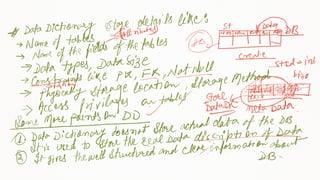 # Data Dictionary Store details like:
→ Name of tables (attributes)
→ Name of the fields of the tables
→ Data types, Data size
→ Constraints like PK, FK, Not Null
→ Physically Storage location, Storage Method
→ Access Privilages on tables
Some More points on DD
① Data Dictionary does not Store actual data of the DB
It is used to store the real Data discription of Data
② It gives the well structured and clear information about
DB.
st
Data
DB
create
Store
DataDic
Meta Data